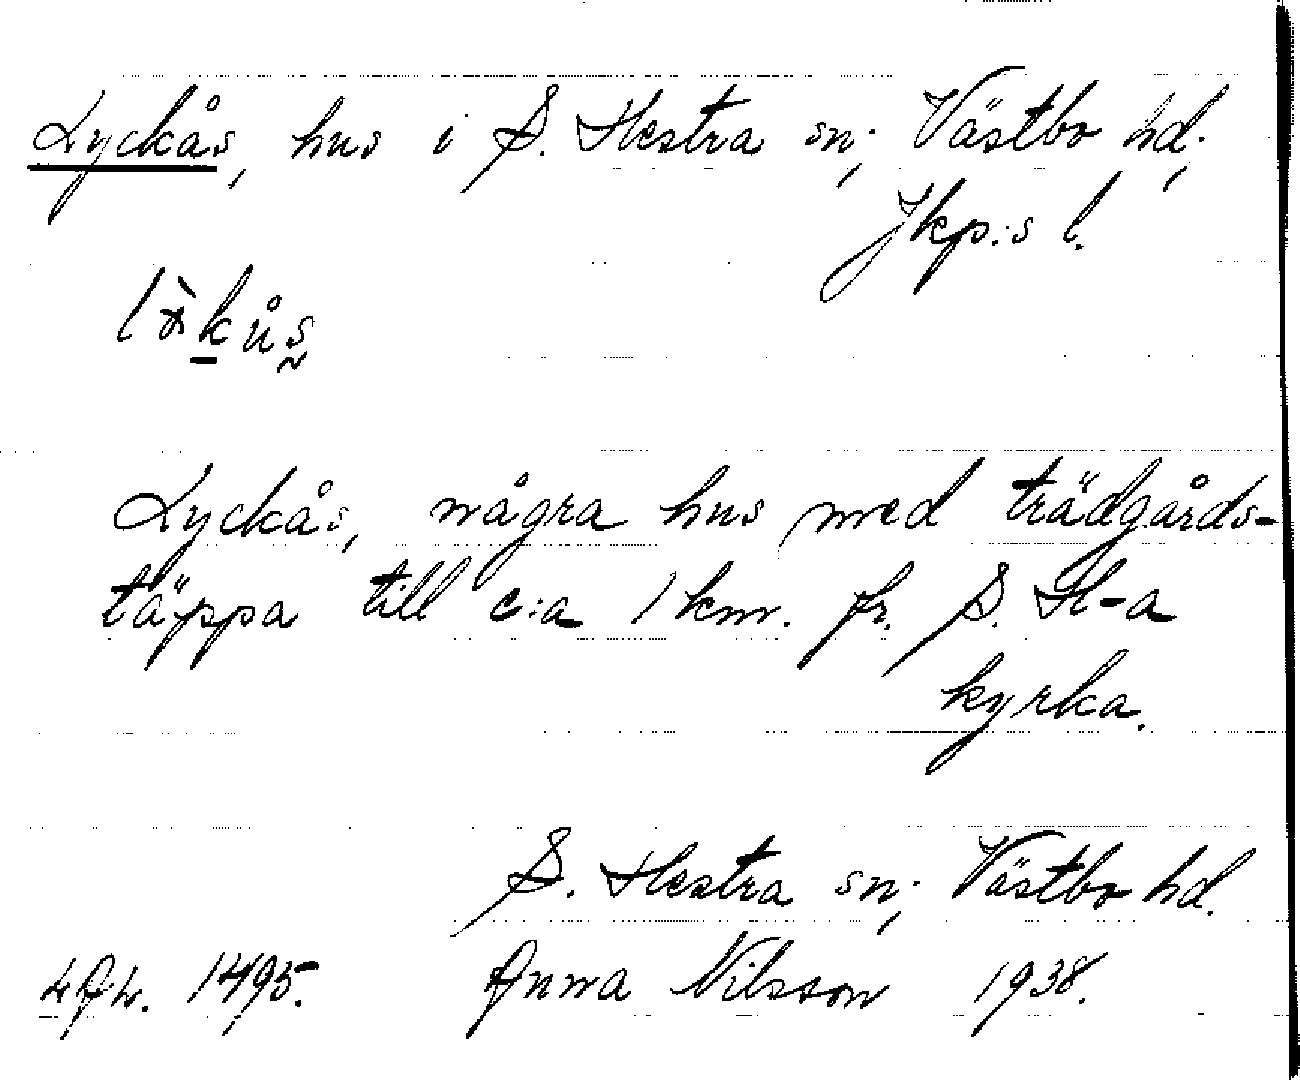 Lyckås, hus i S. Hestra sn; Västbo hd;
Jkp:s l.
Lyckås, några hus med trädgårds-
täppa till c:a 1 km. fr. S. H-a
kyrka.
S. Hestra sn; Västbo hd.
1495. Anna Nilsson 1938.